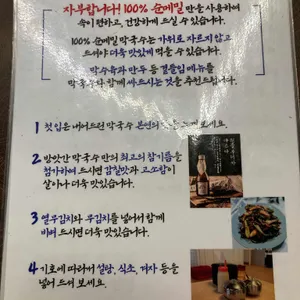 자부합니다! 100% 순메밀 만을 사용하여
속이 편하고, 건강하게 드실 수 있습니다.
100% 순메밀 막국수는 가위로 자르지 않고
드셔야 더욱 맛있게 먹을 수 있습니다.
막수육과 만두 등 곁들임 메뉴를
막국수와 함께 싸드시는 것을 추천드립니다.
1 첫 입은 내어드린 막국수 본연의 보세요.
2 방앗간 막국수 만의 최고의 참기름을
첨가하여 드시면 감칠맛과 고소함이
살아나 더욱 맛있습니다.
3 열무김치와 무김치를 넣어서 함께
비벼 드시면 더욱 맛있습니다.
4 기호에 따라서 설탕, 식초, 겨자 등을
넣어 드셔 보세요.